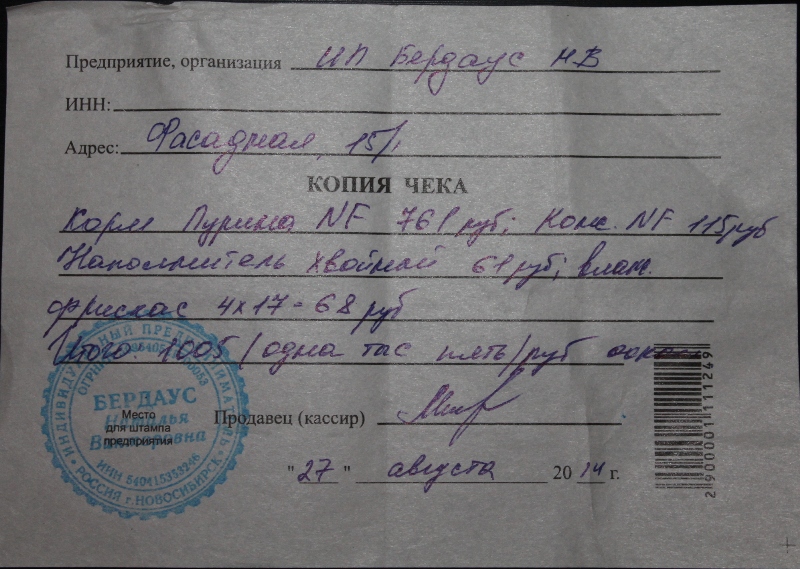 Предприятие, организация ИП Бердаус НВ
ИНН:
Адрес: Фасадная, 15/1
КОПИЯ ЧЕКА
Корм Пурина NF 761 руб; Конс. NF 115 руб
Наполнитель хвойный 61 руб; влаж.
фрискас 4х17 = 68 руб
Итого: 1005 /одна тыс пять/ руб 00коп
ИНДИВИДУАЛЬНЫЙ ПРЕДПРИНИМАТЕЛЬ
БЕРДАУС
Наталья
Викторовна
ИНН 540415353246
РОССИЯ г.НОВОСИБИРСК
Место
для штампа
предприятия
Продавец (кассир)
"27" августа 2014 г.
2 900001 111249